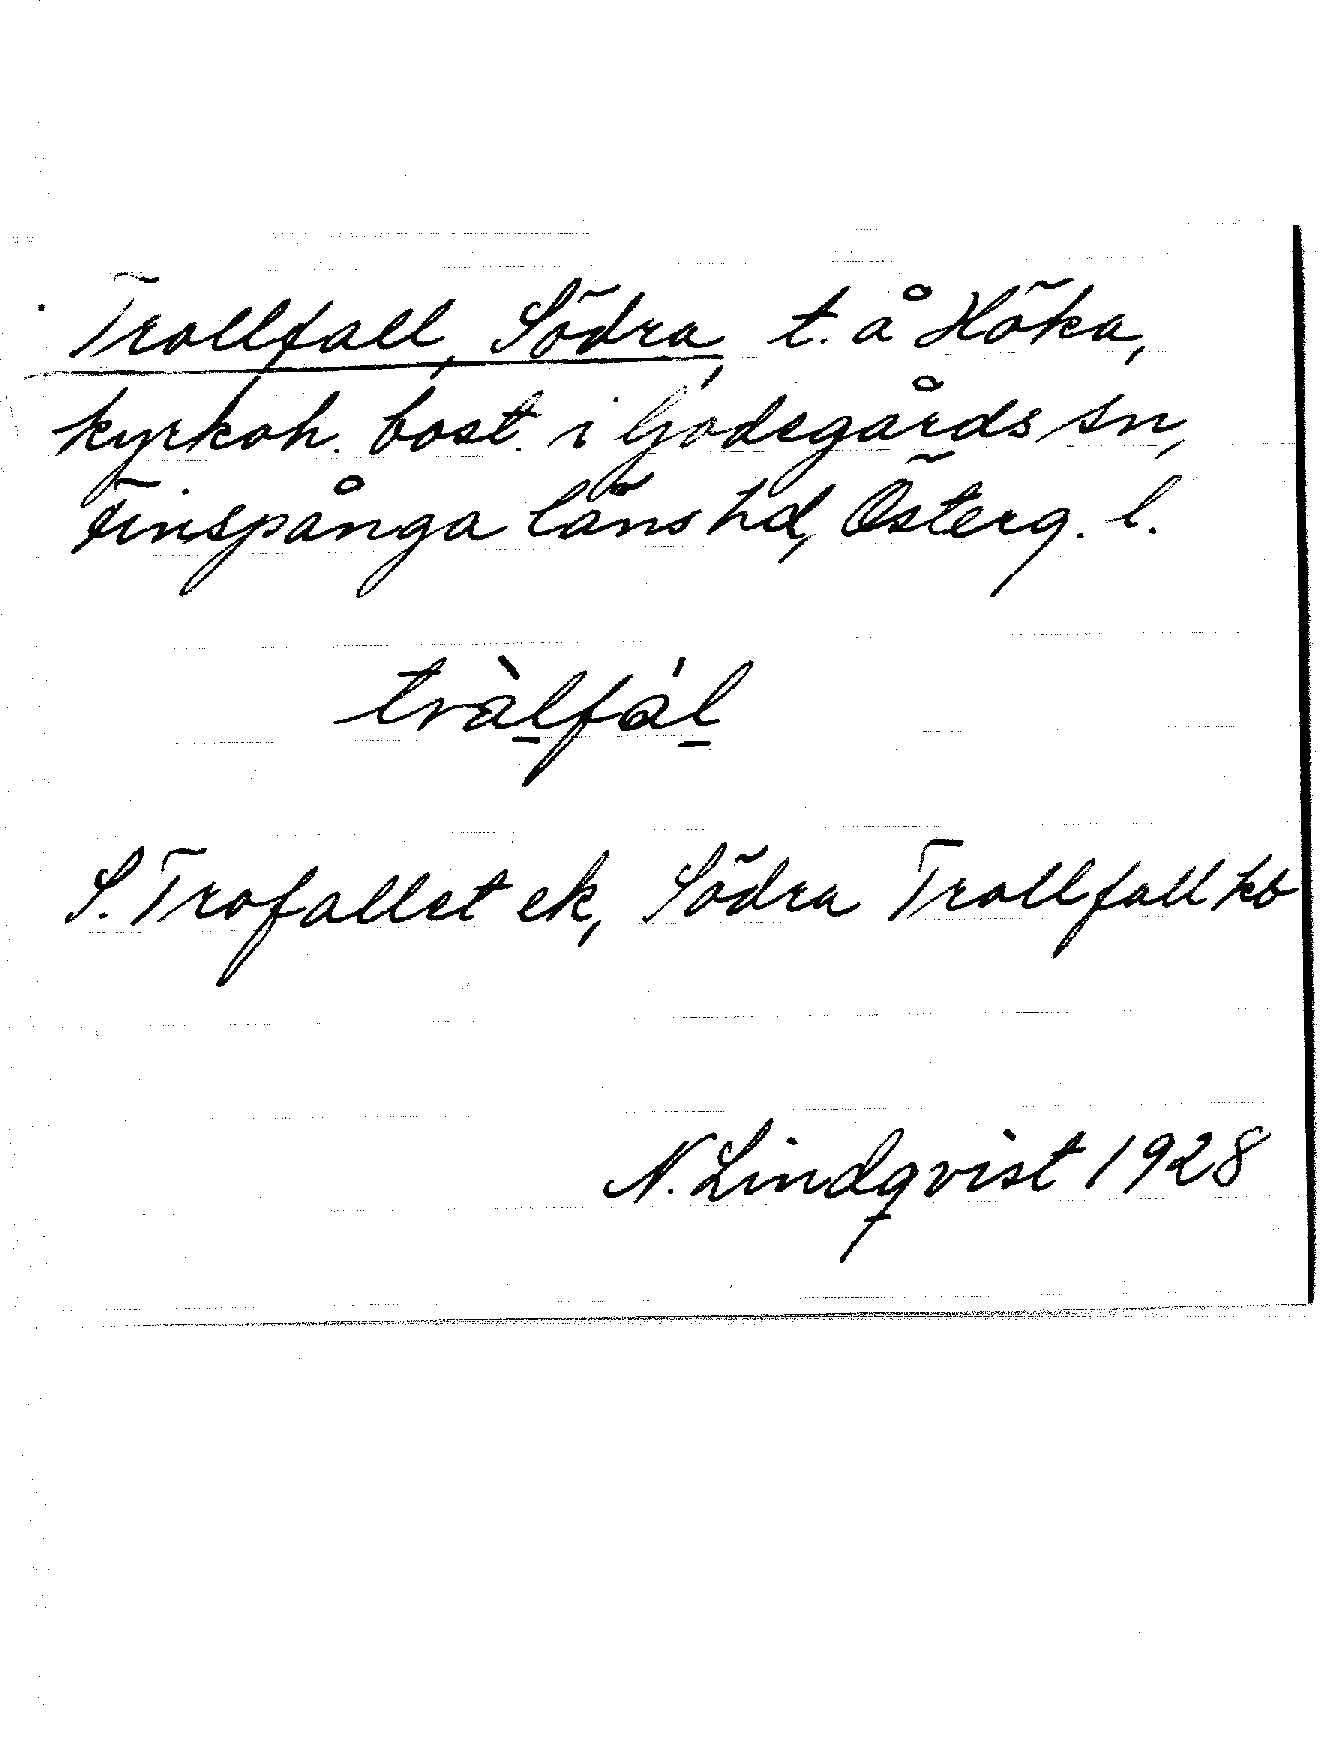 Trollfall, Södra, t. å Höka,
kyrkoh. bost. i Godegårds sn,
Finspånga läns hd, Österg. l.
tràlfál
S. Trofallet ek, Södra Trollfall kb
N. Lindqvist 1928